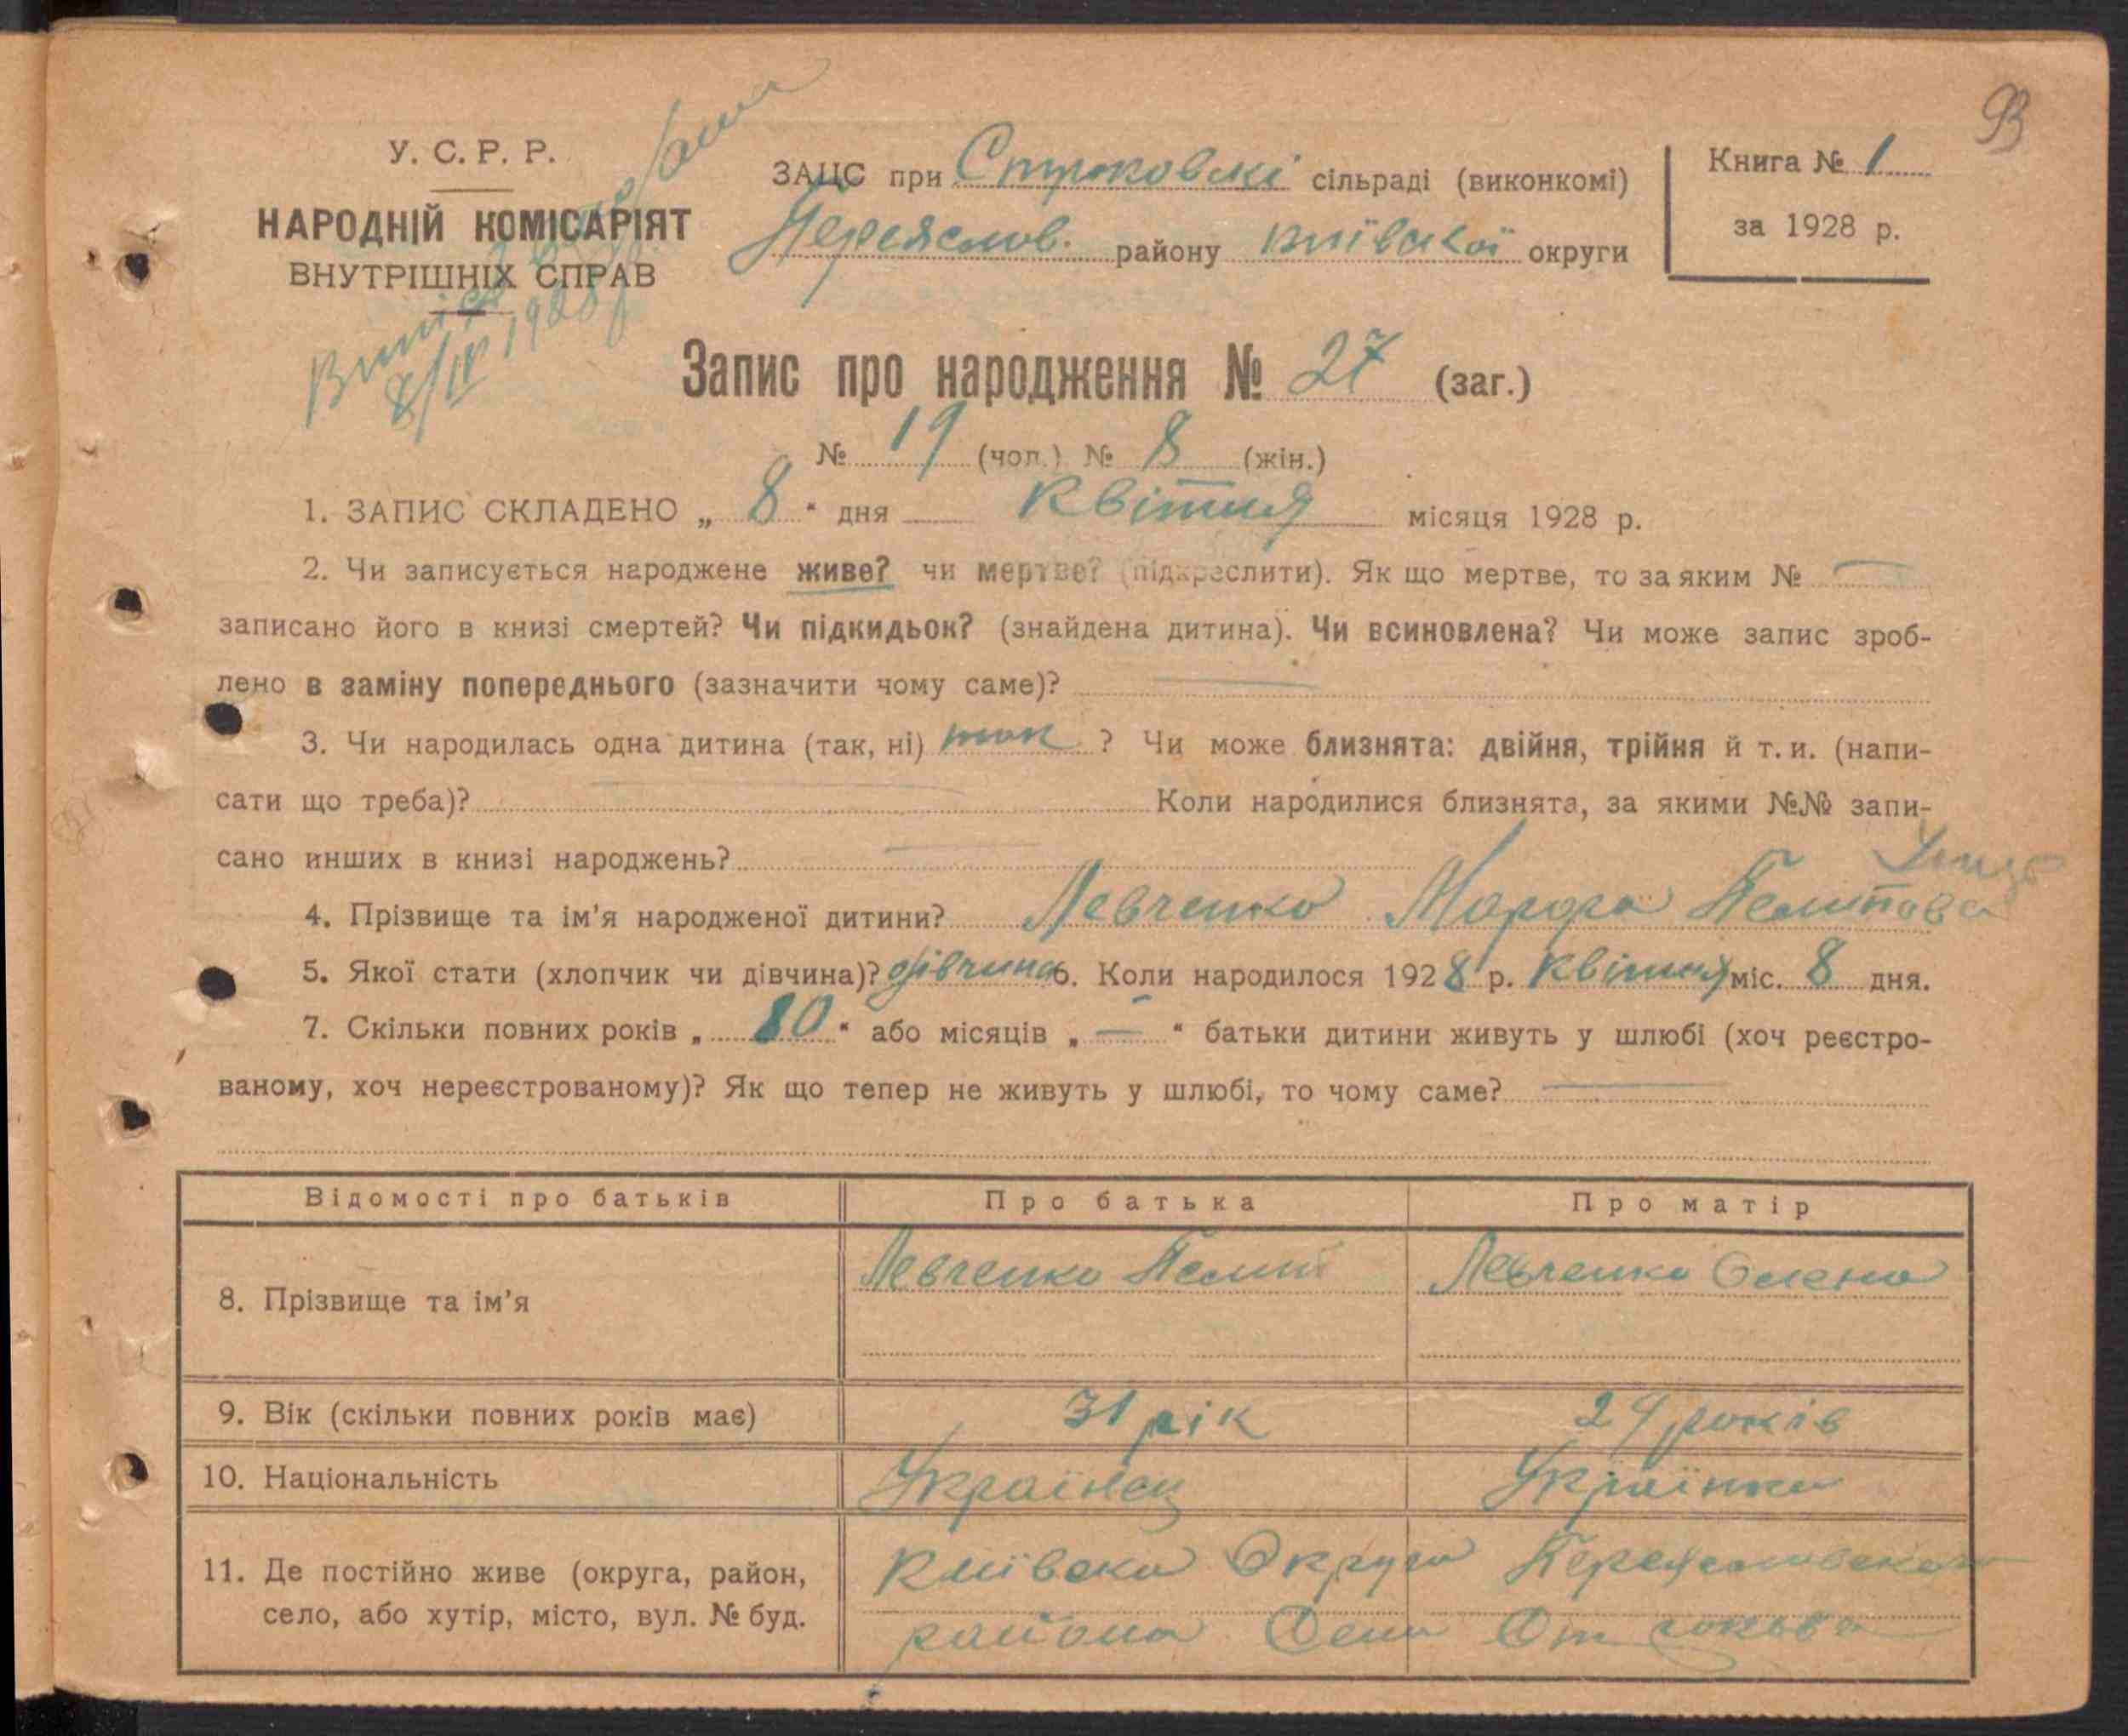 93
У. С. Р. Р.
НАРОДНІЙ КОМІСАРІЯТ
ВНУТРІШНІХ СПРАВ
8/IV 1928 р
ЗАЦС при Строковскі сільраді (виконкомі)
Переяслов. району київської округи
Книга № 1
за 1928 р.
Запис про народження № 27 (заг.)
№ 19 (чол.) № 8 (жін.)
1. ЗАПИС СКЛАДЕНО „ 8 “ дня Квітня місяця 1928 р.
2. Чи записується народжене живе? чи мертве? (підкреслити). Як що мертве, то за яким № —
записано його в книзі смертей? Чи підкидьок? (знайдена дитина). Чи всиновлена? Чи може запис зроб-
лено в заміну попереднього (зазначити чому саме)? —
3. Чи народилась одна дитина (так, ні) так ? Чи може близнята: двійня, трійня й т. и. (напи-
сати що треба)? — Коли народилися близнята, за якими №№ запи-
сано инших в книзі народжень? —
4. Прізвище та ім'я народженої дитини? Левченко
5. Якої стати (хлопчик чи дівчина)? дівчина 6. Коли народилося 1928 р. Квітня міс. 8 дня.
7. Скільки повних років „ 10 “ або місяців „ — “ батьки дитини живуть у шлюбі (хоч реєстро-
ваному, хоч нереєстрованому)? Як що тепер не живуть у шлюбі, то чому саме? —
Відомості про батьків Про батька Про матір
8. Прізвище та ім'я Левченко Левченко Олена
9. Вік (скільки повних років має) 31 рік 29 років
10. Національність Українец Українка
11. Де постійно живе (округа, район, Київска Округа Переяславского
село, або хутір, місто, вул. № буд. района Село